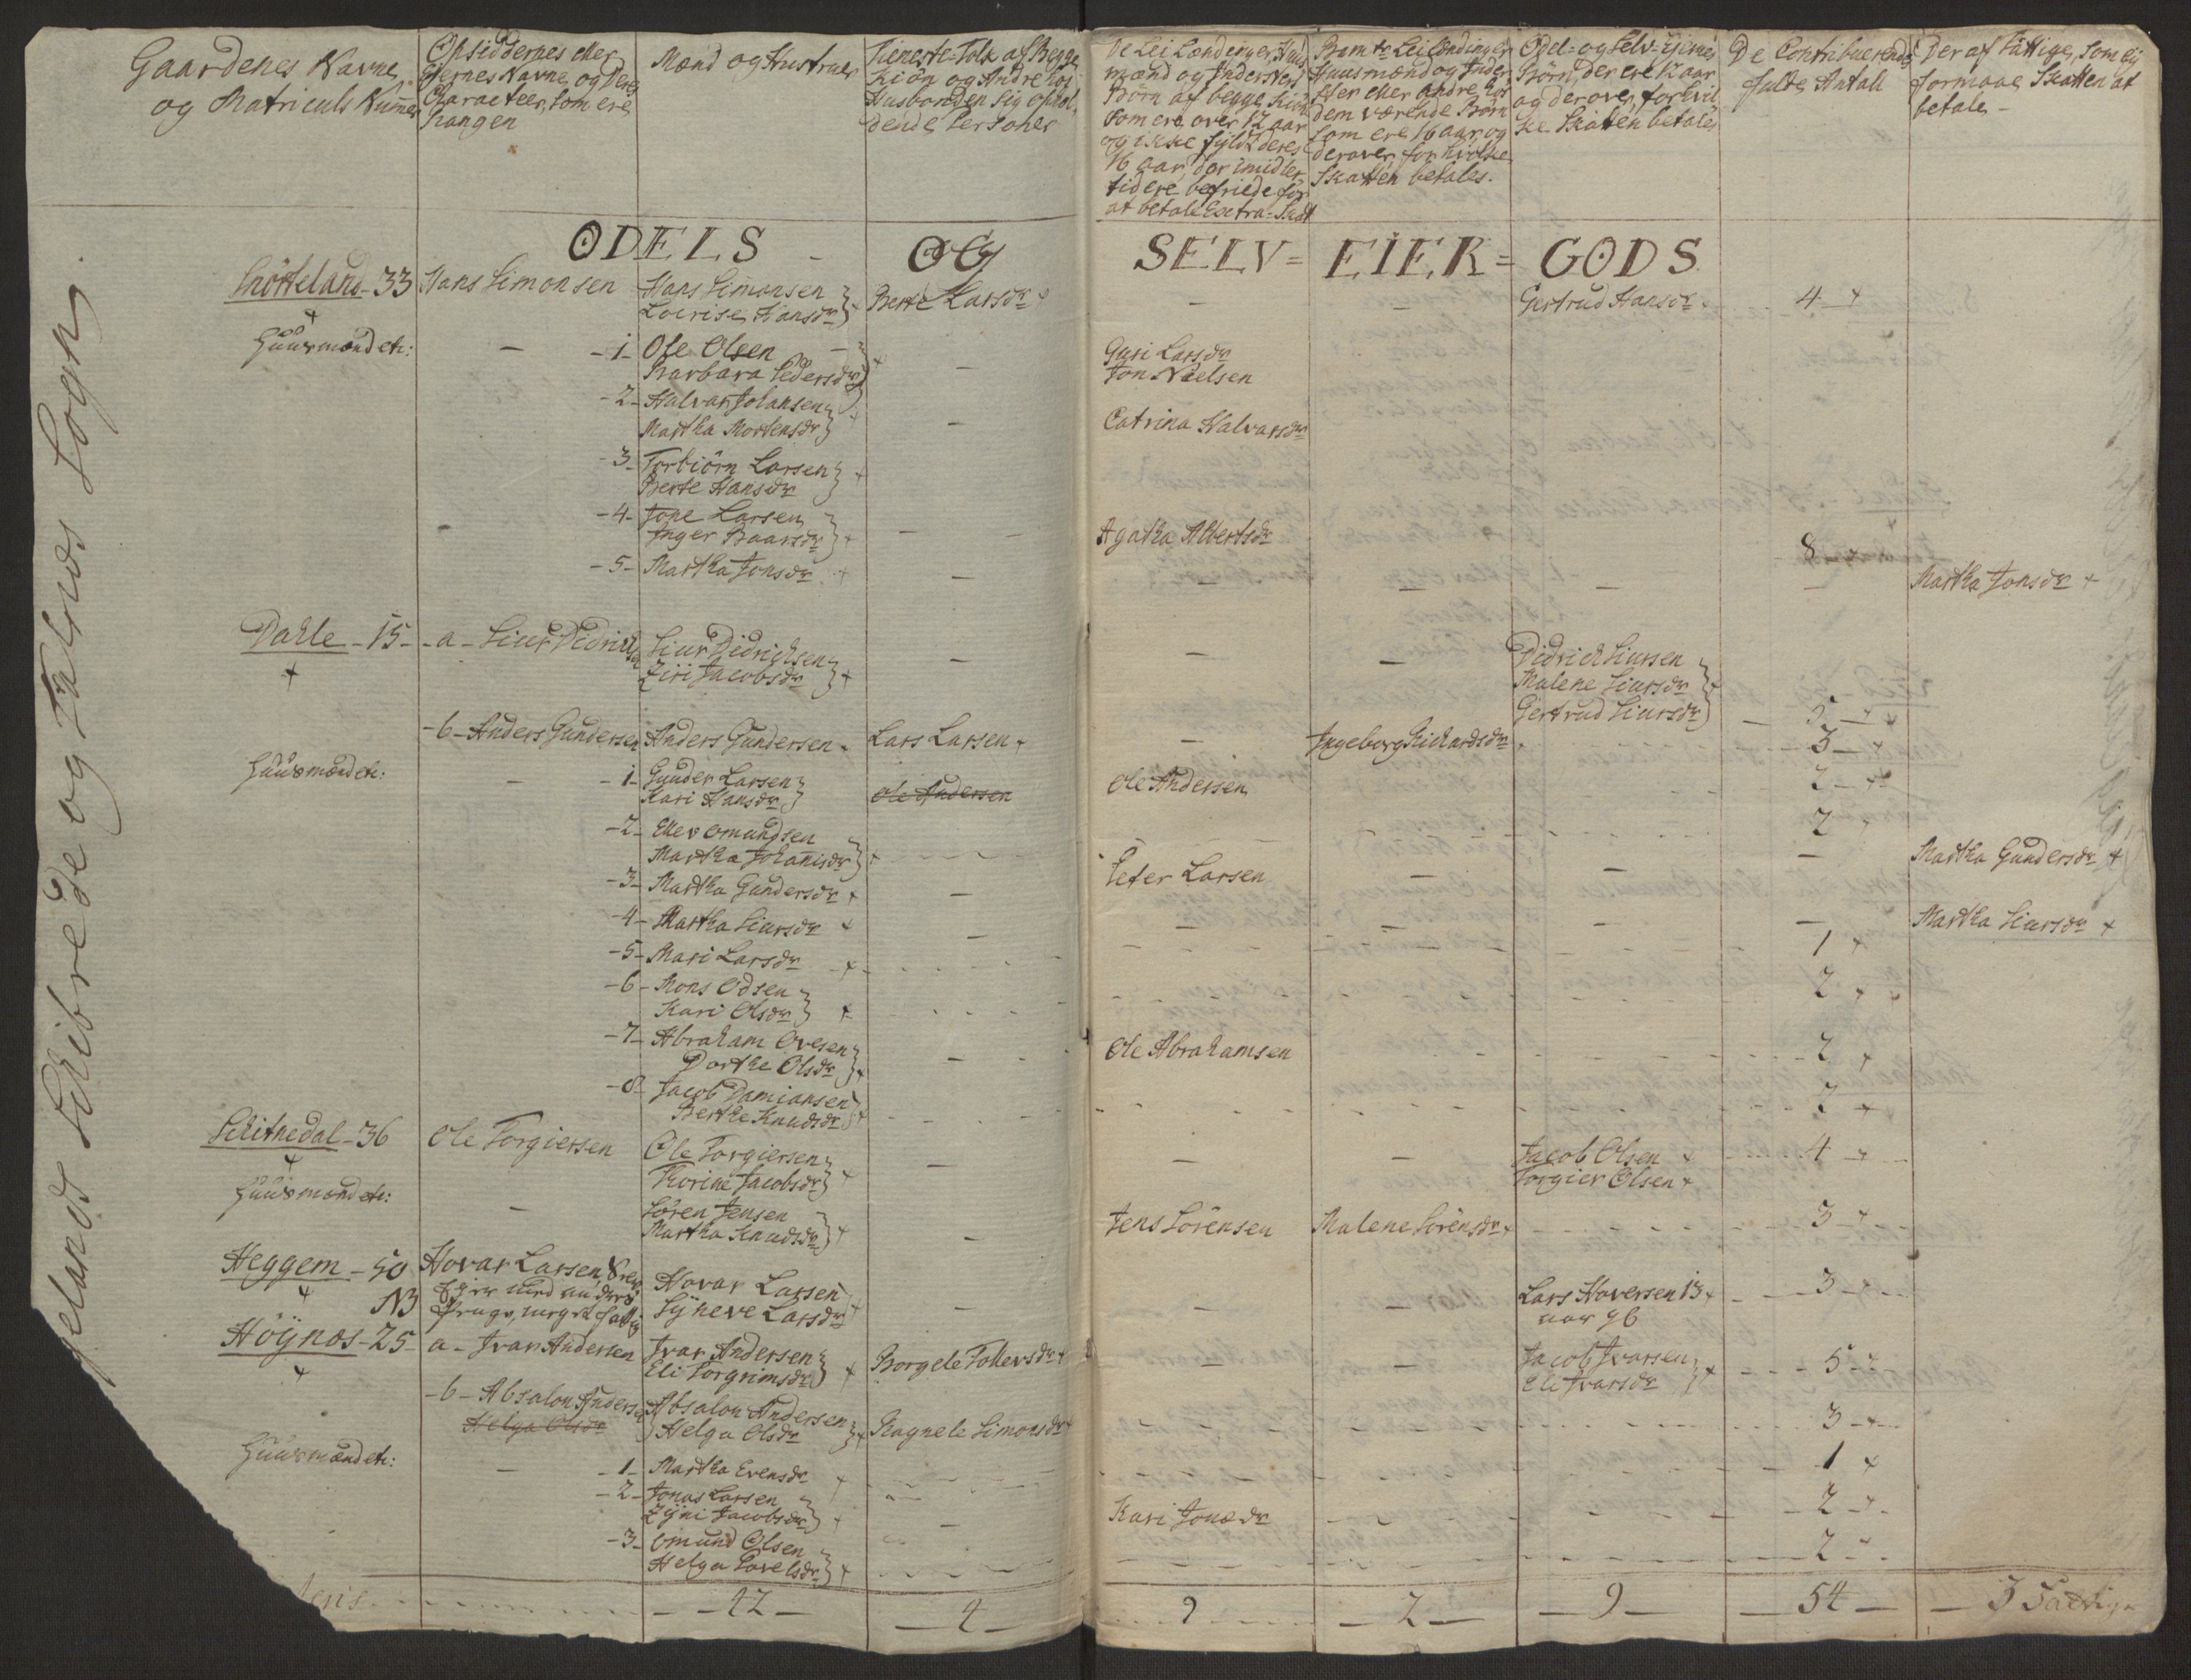 Gaardenes Navne
og Matriculs Numer
Opsiddernes eller
Ejernes Navne og Deres
Characteer, som ere
Mænd og Hustruer
Tieneste-Folk af Begge
Kiön og Andre hos
Husbonden sig ophol
dende Personer
De Leilændinger, Huus
mænd og Inderster
Börn af begge Kiön
som ere over 12 aar
og ikke fyldt deres
16 aar, der imidler
tid ere befriede for
at betale Extra-Skat
Huusmænd og Inder
ster eller andre hos
dem værende Börn
som ere 16 aar og
derover, for hvilke
Skatten betales.
Odel- og Selv-Ejernes
Börn, der ere 12 aar
og derover, for hvil
ke Skatten betales
De Contribuerendes
fulde Antall
Der af fattige, som ej
formaae Skatten at
betale -
ODELS - OG SELV= EIER= GODS
33 Hans Simonsen
Hans Simonsen
Lovise Hansdr
Berte Larsdr +
Gertrud Hansdr
4 +
Huusmænd etc:
- 1 - Ole Olsen
Barbara Pedersdr
Guri Larsdr
Jon Nielsen
- 2 - Halvar Johansen
Martha Mortensdr
Catrina Halvarsdr
- 3 - Torbiörn Larsen
Berte Hansdr
- 4 - Tore Larsen
Inger Baarsdr
Agatha Albertsdr
8
- 5 - Martha Jonsdr +
Martha Jonsdr +
Dahle - 15 - a - Siur Didrichsen
Siur Didrichsen
Ziri Jacobsdr
Didrich Siursen
Malene Siursdr
Gertrud Siursdr
5
- b - Anders Gundersen
Anders Gundersen
Lars Larsen +
Ingeborg Richardsdr
3 +
Huusmænd etc:
- 1 - Gunder Larsen
Kari Hansdr
Ole Andersen
Ole Andersen
2
- 2 - Eller Omundsen
Martha Johanisdr
2
- 3 - Martha Gundersdr +
Peter Larsen
Martha Gundersdr +
- 4 - Martha Siursdr +
Martha Siursdr +
- 5 - Mari Larsdr
1 +
- 6 - Mons Odsen
Kari Olsdr
2
- 7 - Abraham Ovesen
Dorthe Olsdr
Ole Abrahamsen
2 +
- 8 - Jacob Damiansen
Berthe Knudsdr
2 +
Schitnedal - 36
Ole Torgiersen
Ole Torgiersen
Thorine Jacobsdr
Jacob Olsen
Torgier Olsen +
4
Huusmænd etc:
Sören Jensen
Martha Knudsdr
Jens Sörensen
Malene Sörensdr +
3
Heggem - 50
NB
Hovar Larsen
Hovar Larsen
Syneve Larsdr
Lars Hoversen 13
aar gb
3
Höynæs - 25 - a - Ivar Andersen
Ivar Andersen
Eli Torgrimsdr
Borgele Tollevsdr +
Jacob Ivarsen
Eli Ivarsdr
5
- b - Absalon Andersen
Helga Olsdr
Absalon Andersen
Helga Olsdr
Ragnele Simonsdr +
3
Huusmænd etc:
- 1 - Martha Evensdr
1 +
- 2 - Jonas Larsen
Zyni Jacobsdr
Kari Jonædr
2
- 3 - Omund Olsen
Helga Povelsdr
2
42
4
9
2
9
54
3 Fattige